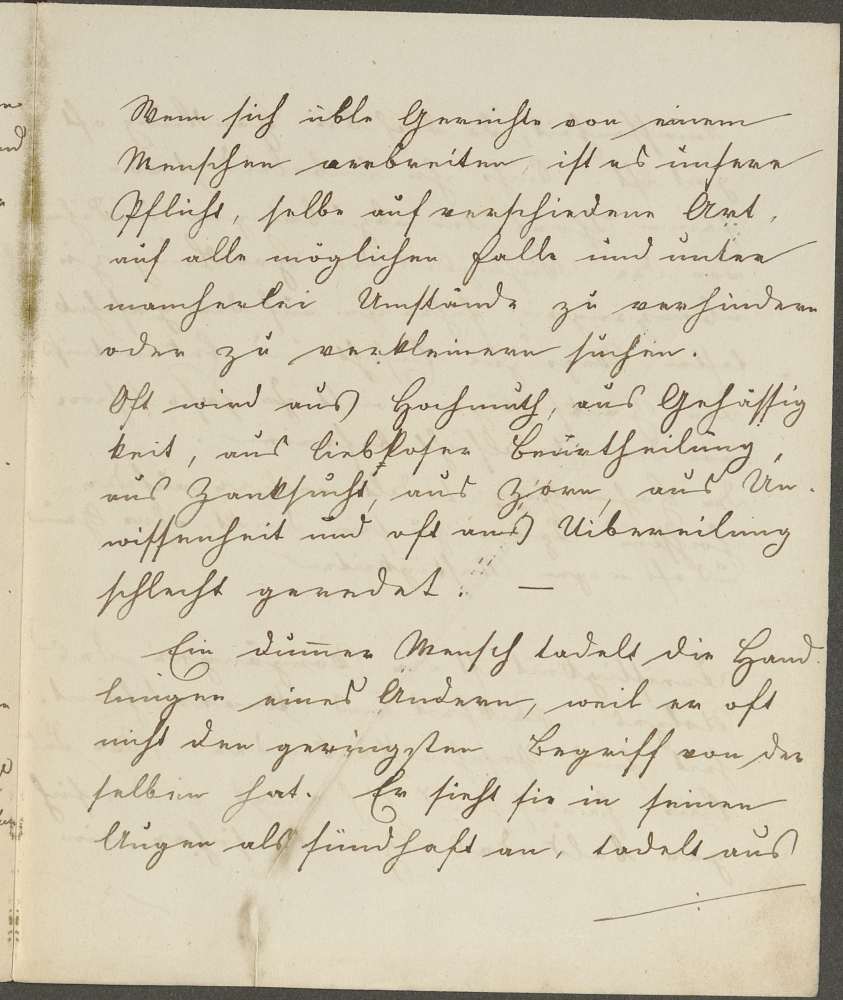 Wenn sich üble Gerüchte von einem
Menschen verbreiten, ist es unsere
Pflicht, selbe auf verschiedene Art,
auf alle möglichen Falle und unter
mancherlei Umstände zu verhindern
oder zu verkleinern suchen.
Oft wird aus Hochmuth, aus Gehässig
keit, aus liebloser Beurtheilung,
aus Zanksucht, aus Zorn, aus Un-
wissenheit und oft aus Uibereilung
schlecht geredet. —
Ein dummer Mensch tadelt die Hand
lungen eines Andern, weil er oft
nicht den geringsten Begriff von der
selben hat. Er sieht sie in seinen
Augen als sündhaft an, tadelt aus